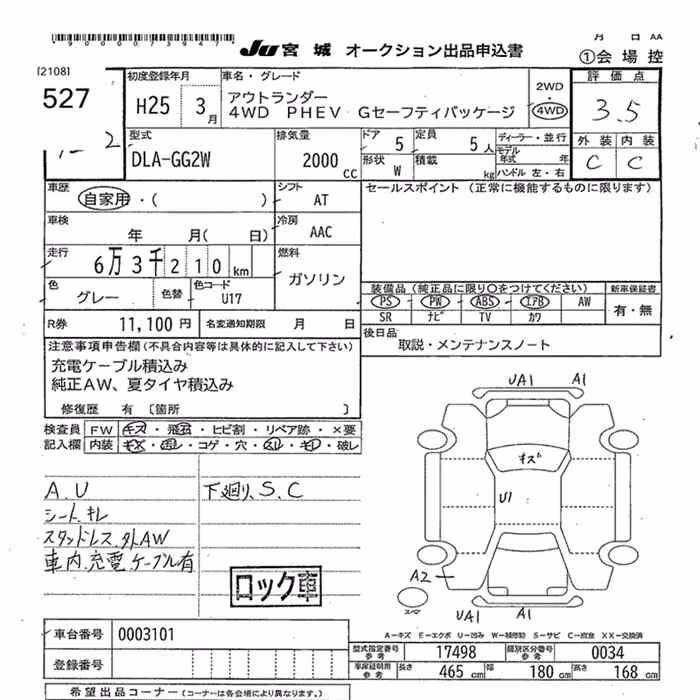 月 日 AA
*90000073947*
JU 宮城 オークション出品申込書
①会場控
[2108]
527
初度登録年月
H25 3月
車名・グレード
アウトランダー
4WD PHEV Gセーフティパッケージ
2WD
4WD
評価点
3.5
外装 内装
C C
型式
DLA-GG2W
排気量
2000 CC
ドア 5
形状 W
定員 5人
積載 kg
ディーラー・並行
モデル年式 年
ハンドル 左・右
車歴
自家用・( )
シフト
AT
セールスポイント (正常に機能するものに限ります)
車検
年 月( 日)
冷房
AAC
走行
6万3千210km
燃料
ガソリン
色
グレー
色替
色コード
U17
装備品(純正品に限り○をつけてください)
PS PW ABS エアB AW
SR ナビ TV カワ
新車保証書
有・無
R券 11,100円
名変通知期限 月 日
後日品
取説・メンテナンスノート
注意事項申告欄(不具合内容等は具体的に記入して下さい)
充電ケーブル積込み
純正AW、夏タイヤ積込み
修復歴 有 〔箇所 〕
検査員 FW キズ・飛石・ヒビ割・リペア跡・×要
記入欄 内装 キズ・汚レ・コゲ・穴・スレ・キレ・破レ
A.U
シート.キレ
スタッドレス.外AW
車内.充電ケーブル有
下廻り.S.C
ロック車
UA1 A1
キズ
U1
A2
スペア
UA1 A1
A-キズ E-エクボ U-凹み W-補修跡 S-サビ C-腐食 XX-交換済
車台番号 0003101
登録番号
型式指定番号 参考 17498
類別区分番号 参考 0034
車庫証明用 参考 長さ 465 cm 幅 180 cm 高さ 168 cm
希望出品コーナー(コーナーは各会場により異なります。)